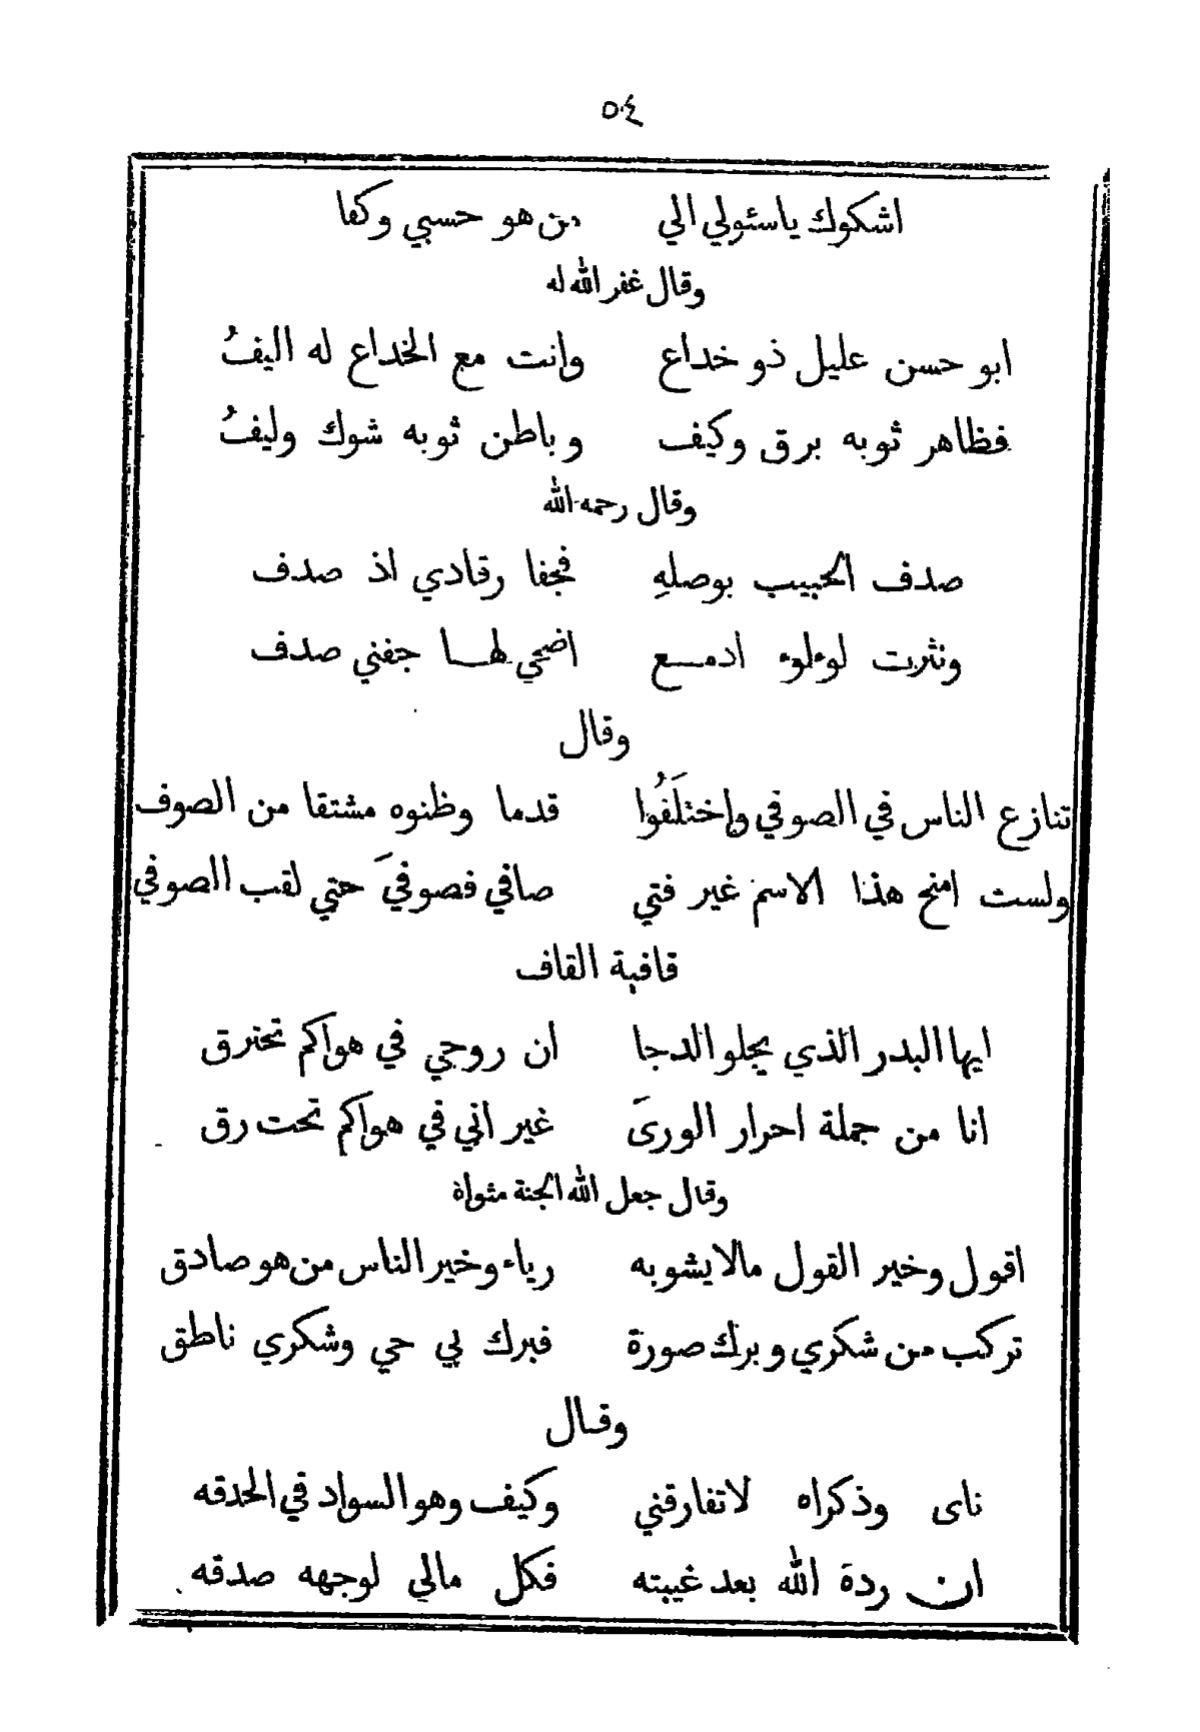 ٥٤
اشكوك ياسئولي الي من هو حسبي وكفا
وقال غفر الله له
ابو حسن عليل ذو خداع وانت مع الخداع له اليفُ
فظاهر ثوبه برق وكيف وباطن ثوبه شوك وليفُ
وقال رحمه الله
صدف الحبيب بوصلهِ فجفا رقادي اذ صدف
ونثرت لوءلوء ادمـع اضحي لهـا جفني صدف
وقال
تنازع الناس في الصوفي وإختلَفُوا قدما وظنوه مشتقا من الصوف
ولست امنح هذا الاسم غير فتي صافي فصوفيَ حتي لقب الصوفي
قافية القاف
ايها البدر الذي يجلو الدجا ان روحي في هواكم تحترق
انا من جملة احرار الورىَ غير اني في هواكم تحت رق
وقال جعل الله الجنة مثواة
اقول وخير القول مالايشوبه رياء وخير الناس من هو صادق
تركب من شكري وبرك صورة فبرك لي حي وشكري ناطق
وقال
ناى وذكراه لاتفارقني وكيف وهو السواد في الحدقه
ان ردة الله بعد غيبته فكل مالي لوجهه صدقه